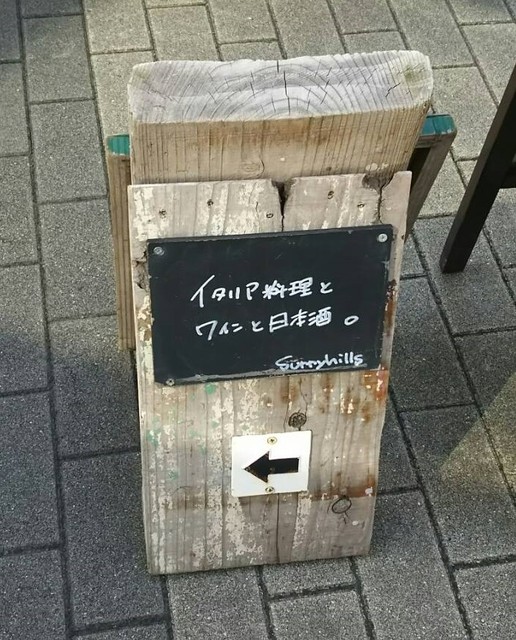 イタリア料理と
ワインと日本酒。
Sunnyhills